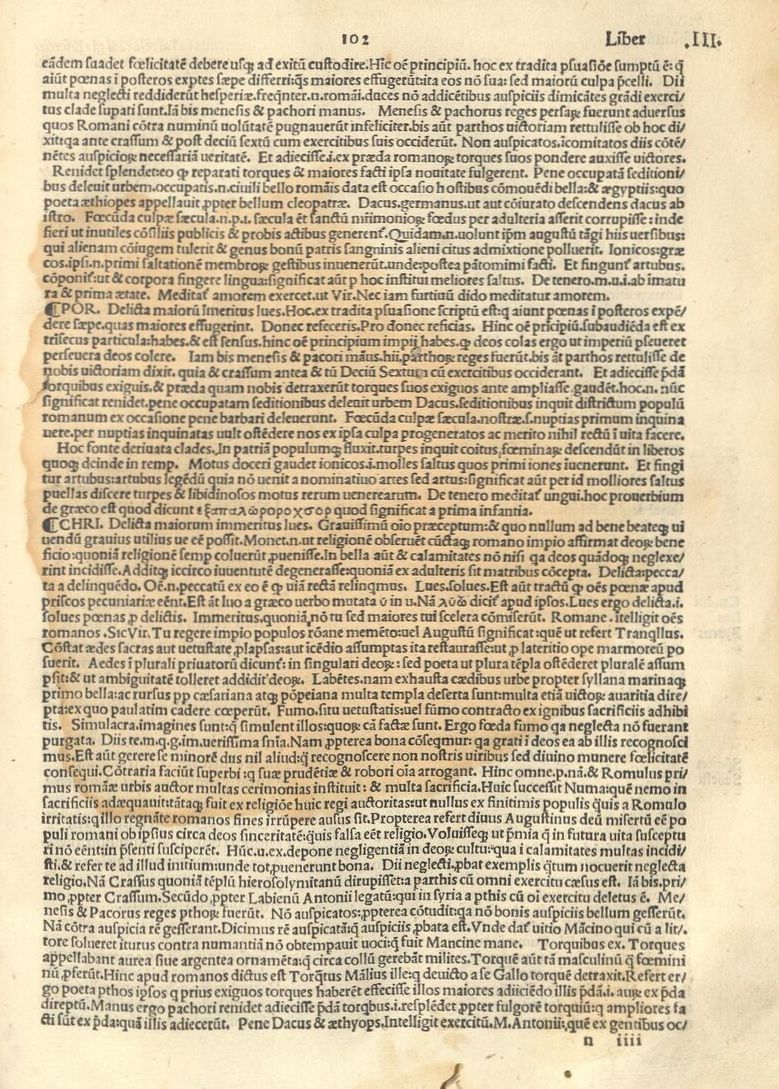 102 Liber .III.
eādem suadet fœlicitatē debere usq; ad exitū custodire. Hic oē principiū. hoc ex tradita psuasiōe sumptū ē: q̄
aiūt pœnas ī posteros exptes sæpe differri: q̄s maiores effugerūt: ita eos nō sua: sed maiorū culpa p̄celli. Dii
multa neglecti reddiderūt hesperiæ. freqn̄ter. n. romāi. duces nō addicētibus auspiciis dimicātes grādi exerci/
tus clade supati sunt. Iā bis menesis & pachori manus. Menesis & pachorus reges persaꝝ fuerunt aduersus
quos Romani cōtra numinū uolūtatē pugnauerūt infeliciter. bis aūt parthos uictoriam rettulisse ob hoc di/
xit: q̄a ante crassum & post deciū sextū cum exercitibus suis occiderūt. Non auspicatos. icomitatos diis cōtē/
nētes auspicioꝝ necessariā ueritatē. Et adiecisse. i. ex præda romanoꝝ torques suos pondere auxisse uictores.
Renidet splendet: eo ꝙ reparati torques & maiores facti ipsa nouitate fulgerent. Pene occupatā seditioni/
bus deleuit urbem. occupatis. n. ciuili bello romāis data est occasio hostibus cōmouēdi bella: & ægyptiis: quo
poeta æthiopes appellauit. ꝓpter bellum cleopatræ. Dacus. germanus. ut aut cōiurato descendens dacus ab
istro. Fœcūda culpæ sæcula. n. p. i. sæcula ēt sanctū mr̄imonioꝝ fœdus per adulteria asserit corrupisse: inde
fieri ut inutiles cōsiliis publicis & probis actibus generent᷑. Quidam. n. uolunt ip̄m augustū tāgi hiis uersibus:
qui alienam cōiugem tulerit & genus bonū patris sanguinis alieni citus admixtione polluerit. Ionicos: græ
cos. ipsi. n. primi saltationē membroꝝ gestibus inuenerūt. unde: postea pātomimi facti. Et fingunt᷑ artubus.
cōponit᷑: ut & corpora fingere lingua: significat aūt p hoc institui meliores saltus. De tenero. m. u. i. ab imatu
ra & prima ætate. Meditat᷑ amorem exercet. ut Vir. Nec iam furtiuū dido meditatur amorem.
¶POR. Delicta maiorū īmeritus lues. Hoc. ex tradita psuasione scriptū est: q̄ aiunt pœnas ī posteros expē/
dere sæpe. quas maiores effugerint. Donec refeceris. Pro donec reficias. Hinc oē prīcipiū. subaudiēda est ex
trīsecus particula: habes. & est sensus. hinc oē principium impii habes. ꝙ deos colas ergo ut imperiū pseueret
perseuera deos colere. Iam bis menesis & pacori maūs. hii. parthoꝝ reges fuerūt. bis āt parthos rettulisse de
nobis uictoriam dixit. quia & crassum antea & tū Deciū Sextum cū exercitibus occiderant. Et adiecisse p̄dā
torquibus exiguis. & præda quam nobis detraxerūt torques suos exiguos ante ampliasse. gaudēt. hoc. n. nūc
significat renidet. pene occupatam seditionibus deleuit urbem Dacus. seditionibus inquit districtum populū
romanum ex occasione pene barbari deleuerunt. Fœcūda culpæ sæcula. nostræ. s. nuptias primum inquina
uere. per nuptias inquinatas uult ostēdere nos ex ipsa culpa progeneratos ac merito nihil rectū ī uita facere.
Hoc fonte deriuata clades. In patriā populumq; fluxit. turpes inquit coitus. fœminaꝝ descendūt in liberos
quoq; deinde in remp. Motus doceri gaudet ionicos. i. molles saltus quos primi iones iuenerunt. Et fingi
tur artubus: artubus legēdū quia nō uenit a nominatiuo artes sed artus: significat aūt per id molliores saltus
puellas discere turpes & libidinosos motus rerum uenerearum. De tenero meditat᷑ ungui. hoc prouerbium
de græco est quod dicunt quod significat a prima infantia.
¶CHRI. Delicta maiorum immeritus lues. Grauissimū oīo præceptum: & quo nullum ad bene beateq; ui
uendū grauius utilius ue eē possit. Monet. n. ut religionē obseruēt cūctaq; romano impio affirmat deoꝝ bene
ficio: quoniā religionē semp coluerūt. puenisse. In bella aūt & calamitates nō nisi qa deos quādoq; neglexe/
rint incidisse. Additq; iccirco iuuentutē degenerasse: quoniā ex adulteris sit matribus cōcepta. Delicta: pecca/
ta a delinquēdo. Oē. n. peccatū ex eo ē ꝙ uiā rectā relinqmus. Lues. solues. Est aūt tractū ꝙ oēs pœnæ apud
priscos pecuniariæ eēnt. Est āt luo a græco uerbo mutata ῡ in u. Nā λυῶ dicit᷑ apud ipsos. Lues ergo delicta. i.
solues pœnas ꝓ delictis. Immeritus. quoniā no tu sed maiores tui scelera cōmiserūt. Romane. itelligit oēs
romanos. Sic Vir. Tu regere impio populos rōane memēto: uel Augustū significat: quē ut refert Tranqllus.
Cōstat ædes sacras aut uetustate. plapsas: aut icēdio assumptas ita restaurasse: ut ꝓ lateritio ope marmoreū po
suerit. Aedes ī plurali priuatorū dicunt᷑: in singulari deoꝝ: sed poeta ut plura tēpla ostēderet pluralē assum
psit: & ut ambiguitatē tolleret addidit deoꝝ. Labētes. nam exhausta cædibus urbe propter syllana marinaq;
primo bella: ac rursus pp cæsariana atq; pōpeiana multa templa deserta sunt: multa etiā uictoꝝ auaritia dire/
pta: ex quo paulatim cadere cœperūt. Fumo. situ uetustatis: uel fūmo contracto ex ignibus sacrificiis adhibi
tis. Simulacra. imagines sunt: q̄ simulent illos: quoꝝ cā factæ sunt. Ergo fœda fumo qa neglecta nō fuerant
purgata. Diis te. m. q. g. im. uerissima sn̄ia. Nam. ꝓpterea bona cōseqmur: qa grati ī deos ea ab illis recognosci
mus. Est aūt gerere se minorē dus nil aliud: q̄ recognoscere non nostris uiribus sed diuino munere fœlicitatē
consequi. Cōtraria faciūt superbi: q suæ prudētiæ & robori oīa arrogant. Hinc omne. p. nā. & Romulus pri/
mus romāæ urbis auctor multas cerimonias instituit: & multa sacrificia. Huic successit Numa: quē nemo in
sacrificiis adæquauit: tātaq; fuit ex religiōe huic regi auctoritas: ut nullus ex finitimis populis q̄uis a Romulo
irritatis: q illo regnāte romanos fines irrūpere ausus sit. Propterea refert diuus Augustinus deū misertū eē po
puli romani ob ipsius circa deos sinceritatē: q̄uis falsa eēt religio. Voluisseq; ut p̄mia q̄ in futura uita susceptu
ri nō eēnt: in p̄senti susciperēt. Hūc. u. ex. depone negligentiā in deoꝝ cultu: qua i calamitates multas incidi/
sti. & refer te ad illud initium: unde tot. puenerunt bona. Dii neglecti. pbat exemplis q̄tum nocuerit neglecta
religio. Nā Crassus quoniā tēplū hierosolymitanū diripuisset: a parthis cū omni exercitu cæsus est. Iā bis. pri/
mo. ꝓpter Crassum. Secūdo. ꝓpter Labienū Antonii legatū: qui in syria a pthis cū oi exercitu deletus ē. Me/
nesis & Pacorus reges pthoꝝ fuerūt. Nō auspicatos: ꝓpterea cōtudit: qa nō bonis auspiciis bellum gesserūt.
Nā cōtra auspicia rē gesserant. Dicimus rē auspicatā: q̄ auspiciis. pbata est. Vnde dat᷑ uitio Mācino qui cū a lit/
tore solueret iturus contra numantiā nō obtempauit uoci: q̄ fuit Mancine mane. Torquibus ex. Torques
appellabant aurea siue argentea ornamēta: q̄ circa collū gerebāt milites. Torquē aūt tā masculinū q̄ fœmini
nū. pferūt. Hinc apud romanos dictus est Torq̄tus Mālius ille: q̄ deuicto a se Gallo torquē detraxit. Refert er/
go poeta pthos ipsos q prius exiguos torques haberēt effecisse illos maiores adiiciēdo illis p̄dā. i. auꝝ ex p̄da
direptū. Manus ergo pachori renidet adiecisse p̄dā torq̄bus. i. resplēdet. ꝓpter fulgorē torquiū: q̄ ampliores fa
cti sūt ex p̄da: quā illis adiecerūt. Pene Dacus & æthyops. Intelligit exercitū. M. Antonii: quē ex gentibus oc/
n iiii